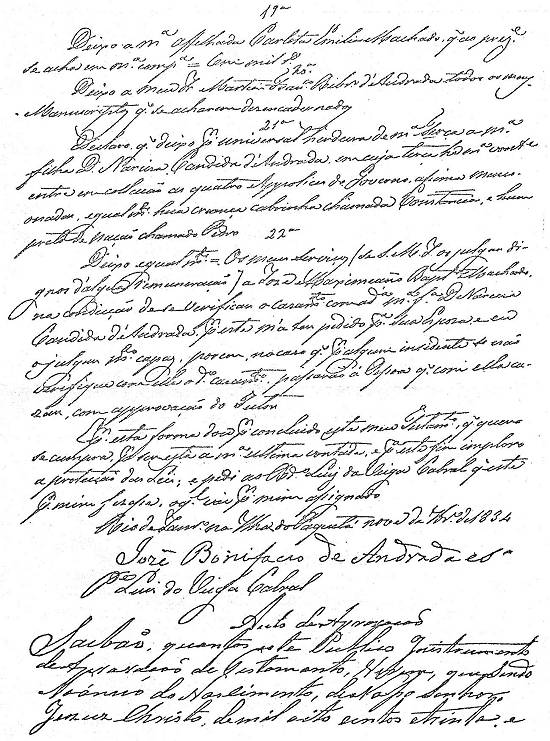 19ª
Deixo a mª affilhada Carlota Emilia Machado, q ao prez.e
se acha em mª compª = Cem mil rs
20ª
Deixo a meu Ir Martim Franco Ribrº d'Andrada todos os meus
Manuscriptos q se acharem desencadernados
21ª
Declaro, q deixo pr universal herdeira de mª Terça a mª
filha D. Narciza Candida d'Andrada, em cuja terça
entre em collação as quatro Apolices do Governo, asima menci
onadas, e igual.te huã crianca cabrinha chamada Constancia, e hum
preto de nação chamado Pedro
22ª
Deixo igual.te = Os meus serviços (se S. M. I. os julgar di
gnos d'algũa remuneração) a José Maximiano Baptª Machado,
na condição de se verificar o cazam.to com a dª mª fª D. Narciza
Candida d'Andrada, pr este m'a ter pedido pª sua Espoza, e eu
o julgar mto capaz, porem, no cazo q pr algum insidente se não
verifique com elle o dº cazam.to, passarão á Pessoa q com ella ca
zar, com approvação do Tutor
Pr esta forma dou pr concluido este meu Testam.to, q quero
se cumpra, pr ser esta a mª ultima vontade, e pª esse fim imploro
a proteção das Leis; e pedi ao Pde Luiz da Veiga Cabral q este
pr mim fizesse, o q vai pr mim assignado
Rio de Janrº na Ilha de Paquetá nove de 7brº de 1834
José Bonifacio de Andrada e Sª
Pde Luiz da Veiga Cabral
Auto de Aprovação
Saibaõ, quantos este Publico Instrumento
de Aprovaçaõ de Testamento, virem, que sendo
Noánno do Nascimento, de Nosso Senhor
Jezus Christo, de mil oito centos etrinta, e